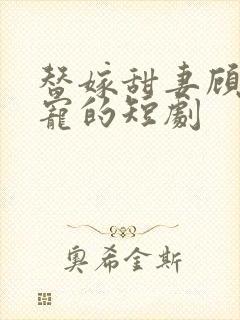 替嫁甜妻顾
宠的短劇
奥希金斯